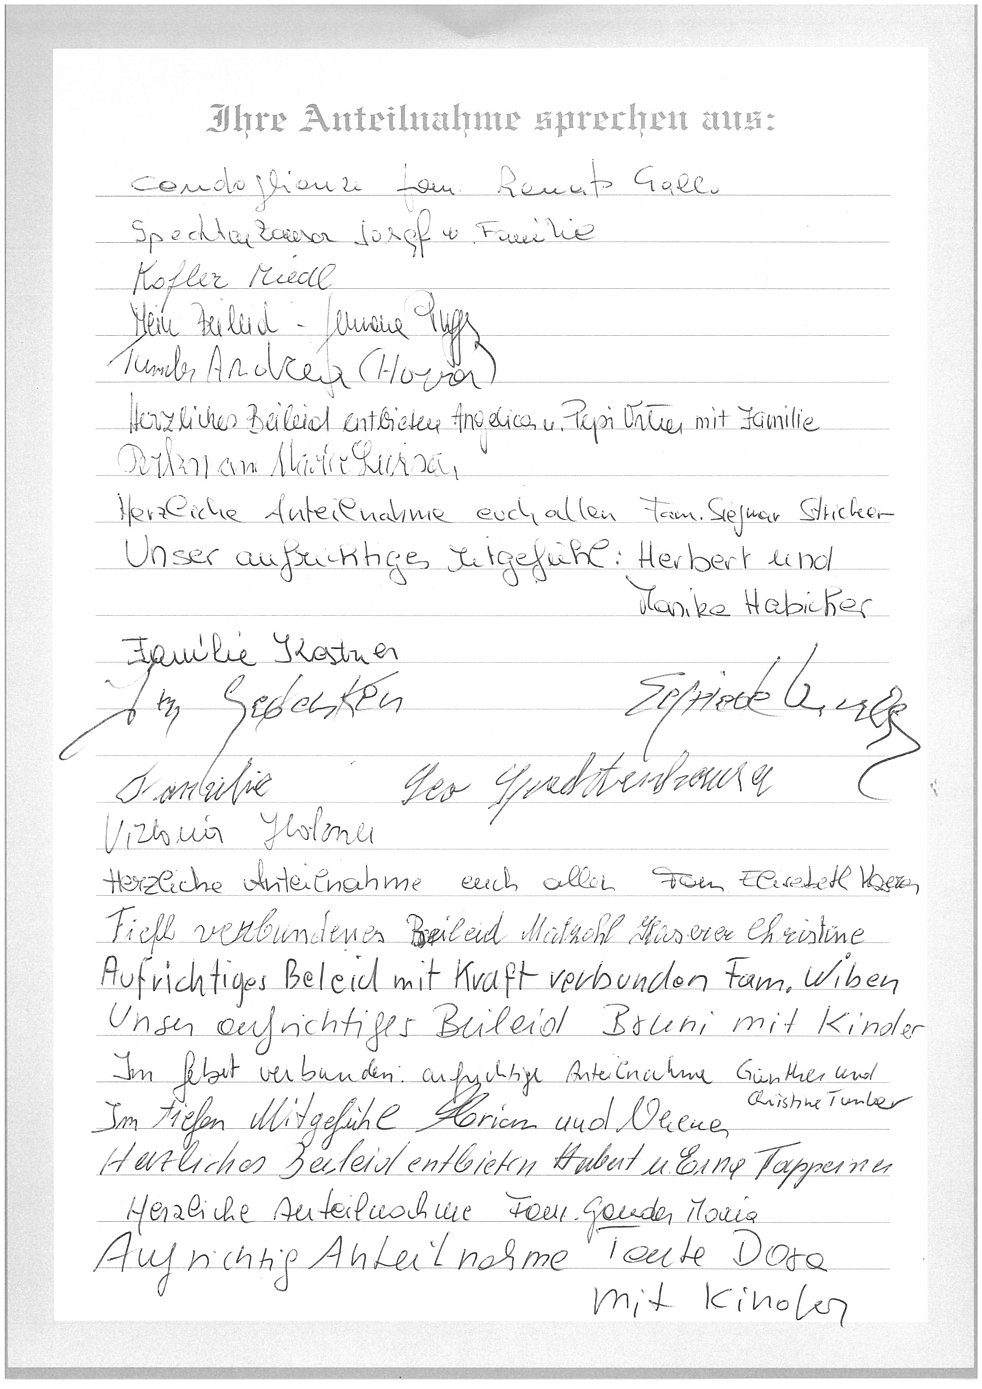 Ihre Anteilnahme sprechen aus:
condoglianze fam. Renato Gallo
Spechtenhauser Josef u. Familie
Kofler Friedl
Mein Beileid -
Tumler Andreas
Herzliches Beileid entbieten Angelica u. Pepi mit Familie
Herzliche Anteilnahme euch allen Fam. Siegmar Stricker
Unser aufrichtiges Mitgefühl: Herbert und
Monika Habicher
Familie Kostner
Im Gedenken Elfriede
Familie Leo Spechtenhauser
Viktoria Holzner
Herzliche Anteilnahme euch allen Fam Elisabeth
Tiefb verbundenes Beileid Matzohl Kaserer Christine
Aufrichtiges Beleid mit Kraft verbunden Fam. Wiben
Unser aufrichtiges Beileid Bruni mit Kinder
Im Gebet verbunden. aufrichtige Anteilnahme Günther und
Christine Tumler
Im tiefen Mitgefühl Florian und Verena
Herzliches Beileid entbieten Hubert u Erna Tappeiner
Herzliche Anteilnahme Fam. Gander Maria
Aufrichtig Anteilnahme Tante Dora
mit Kinder